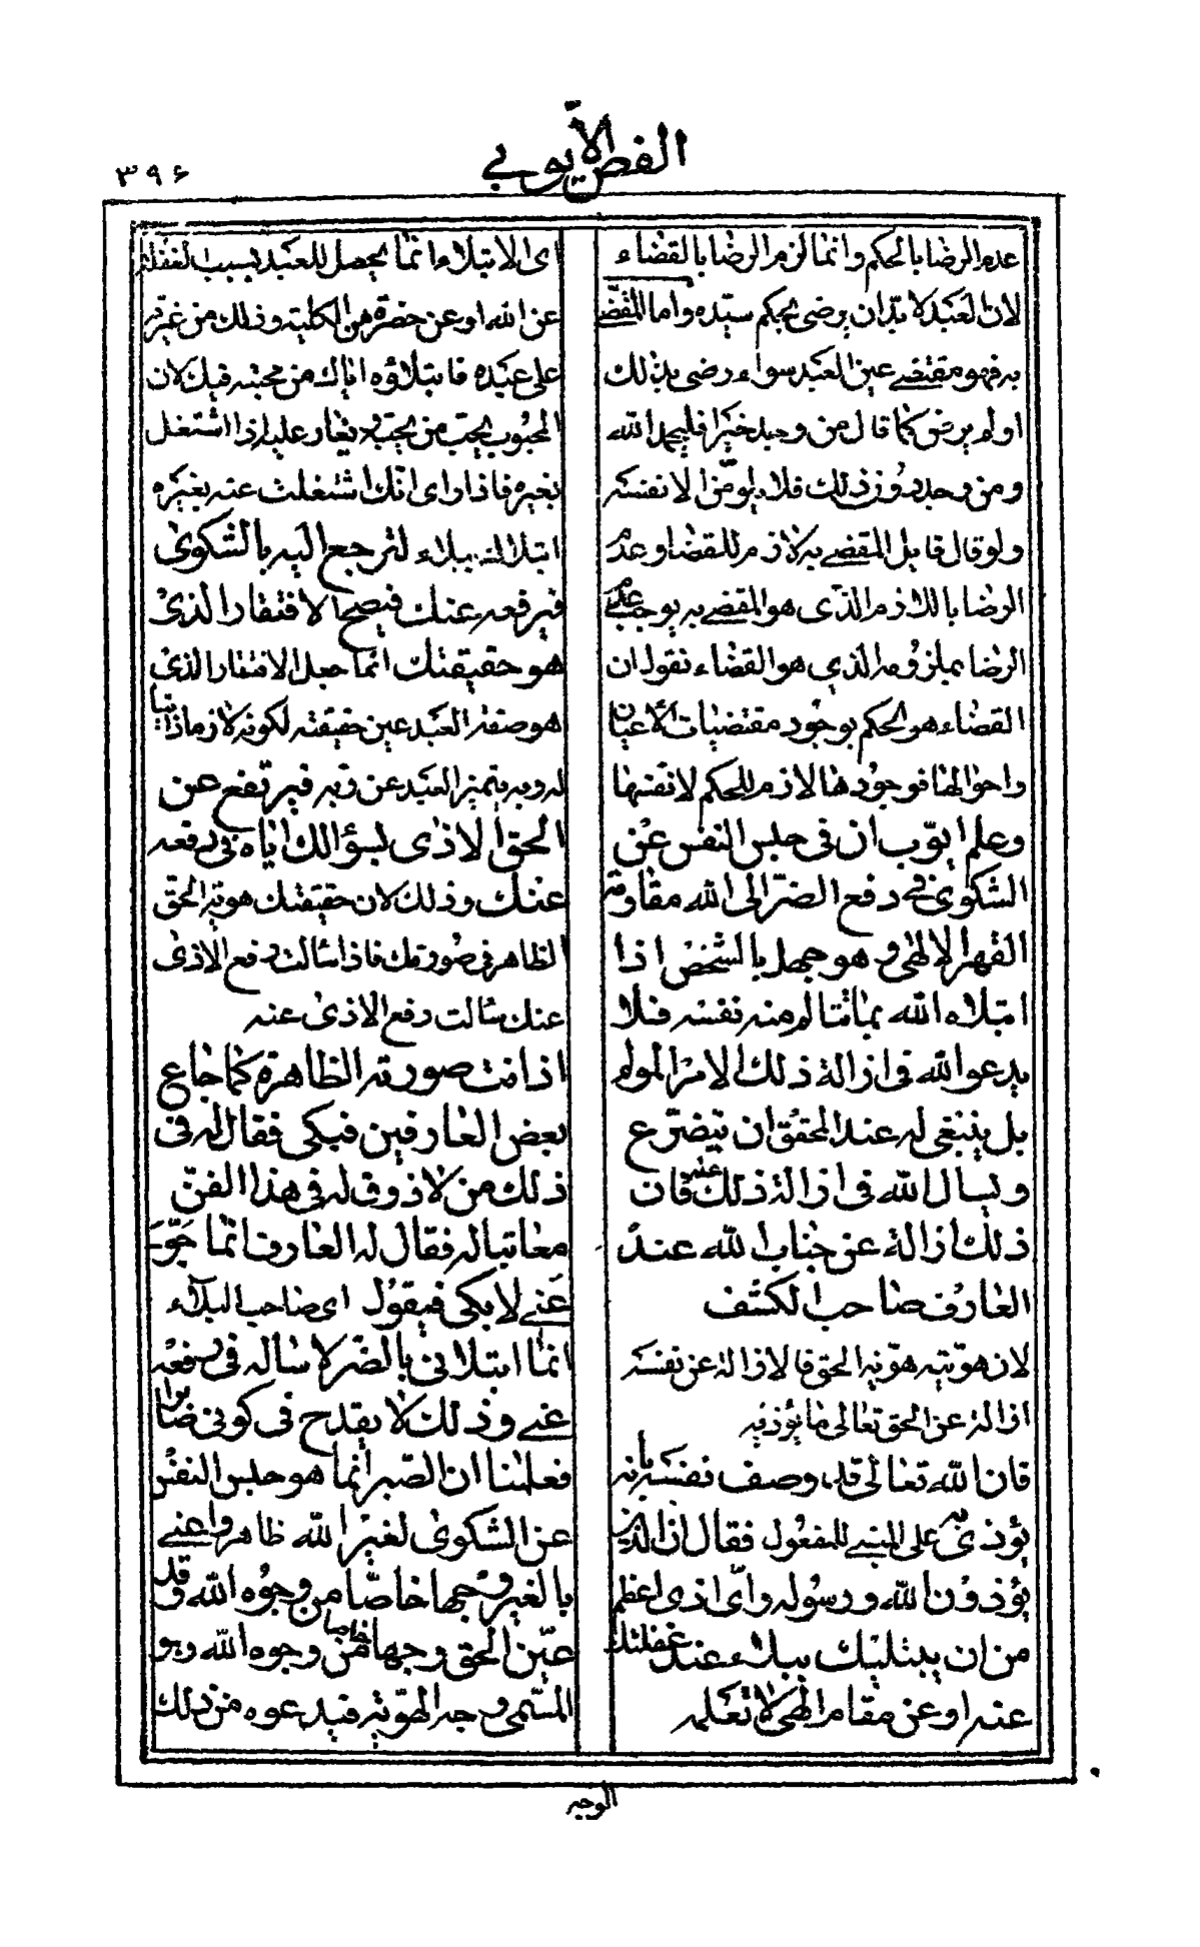 الفص الأيوبي
٣٩٦
عدم الرضا بالحكم وانما لزم الرضا بالقضاء
لان العبد لا بد ان يرضى بحكم سيده واما المقضي
به فهو مقتضى عين العبد سواء رضى بذلك
او لم يرض كما قال من وجد خيرا فليحمد الله
ومن وجد دون ذلك فلا يلومن الا نفسه
ولو قال قايل المقضي به لازم للقضا وعدم
الرضا باللازم الذى هو المقضي به يوجب عدم
الرضا بملزومه الذي هو القضاء نقول ان
القضاء هو الحكم بوجود مقتضيات الأعيان
واحوالها فوجودها لازم للحكم لا نفسها
وعلم ايوب ان فى حبس النفس عن
الشكوى فى دفع الضر الى الله مقاومة
القهر الالهى وهو جهل بالشخص اذا
ابتلاه الله بما تتالم منه نفسه فلا
يدعو الله فى ازالة ذلك الامر المولم
بل ينبغى له عند المحقق ان يتضرع
ويسال الله فى ازالة ذلك عنه فان
ذلك ازالة عن جناب الله عند
العارف صاحب الكشف
لان هويته هوية الحق فالازالة عن نفسه
ازالة عن الحق تعالى ما يؤذيه
فان الله تعالى قد وصف نفسه بانه
يؤذى على المبني للمفعول فقال ان الذين
يؤذون الله ورسوله واى اذى اعظم
من ان يبتليك ببلاء عند غفلتك
عنه او عن مقام الهى لا تعلمه
اى الابتلاء انما يحصل للعبد بسبب لغفلته
عن الله او عن حضرة من الكلية وذلك من غيرته
على عبده فابتلاؤه اياك من محبته فيك لان
المحبوب يحب من يحبه ويغار عليه اذا اشتغل
بغيره فاذا راى انك اشتغلت عنه بغيره
ابتلاك ببلاء لترجع اليه بالشكوى
فيرفعه عنك فيصح الافتقار الذى
هو حقيقتك انما جعل الافتقار الذى
هو صفة العبد عين حقيقته لكونه لازما ذاتيا
له وبه يتميز العبد عن ربه فيرتفع عن
الحق الاذى بسؤالك اياه فى رفعه
عنك وذلك لان حقيقتك هوية الحق
الظاهر فى صورتك فاذا سالت رفع الاذى
عنك سالت رفع الاذى عنه
اذ انت صورته الظاهرة كما جاع
بعض العارفين فبكى فقال له فى
ذلك من لا ذوق له فى هذا الفن
معاتبا له فقال له العارف انما جوّعـ
ـنى لابكى فيقول اى صاحب البلاء
انما ابتلانى بالضر لاساله فى رفعه
عنى وذلك لا يقدح فى كونى صابرا
فعلمنا ان الصبر انما هو حبس النفس
عن الشكوى لغير الله ظاهر واعنى
بالغير وجها خاصا من وجوه الله وقد
عين الحق وجها خاصا من وجوه الله وهو
المسمى وجه الهوية فيدعوه من ذلك
الوجه